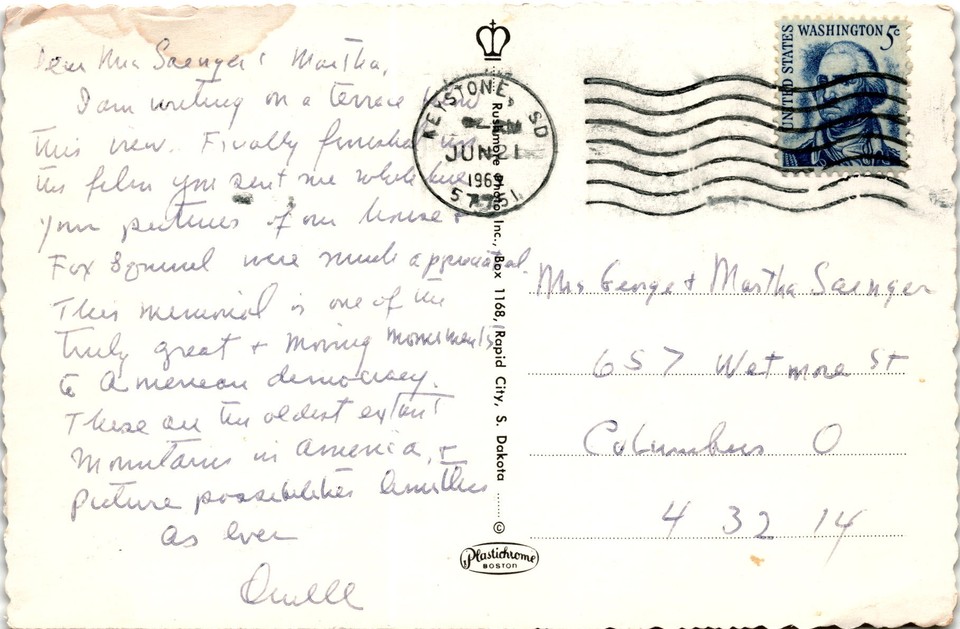 Dear Mrs Saenger & Martha,
I am writing on a terrace
this view. Finally finished
the film you sent me
Your pictures of our house &
Fox Squirrel were much appreciated.
This memorial is one of the
truly great & moving monuments
to American democracy.
These are the oldest extant
mountains in America, &
picture possibilities limitless
as ever
KEYSTONE, SD
JUN 21
57751
Rushmore Photo Inc., Box 1168, Rapid City, S. Dakota ©
Plastichrome
BOSTON
UNITED STATES
WASHINGTON 5c
Mrs George & Martha Saenger
657 Wetmore St
Columbus O
43214